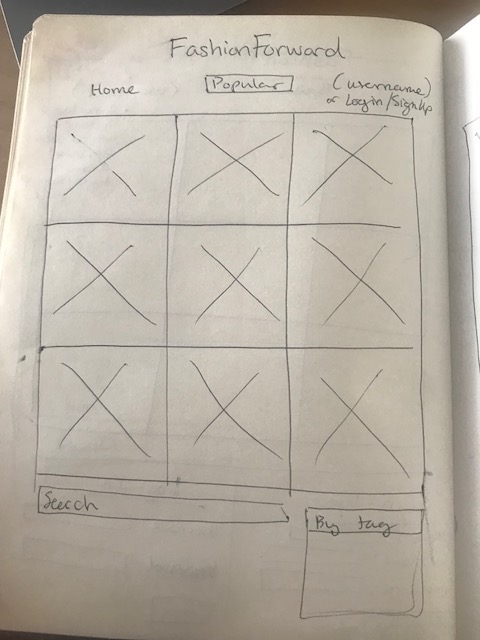 FashionForward
Home Popular (username)
or Login/SignUp
Search
By tag